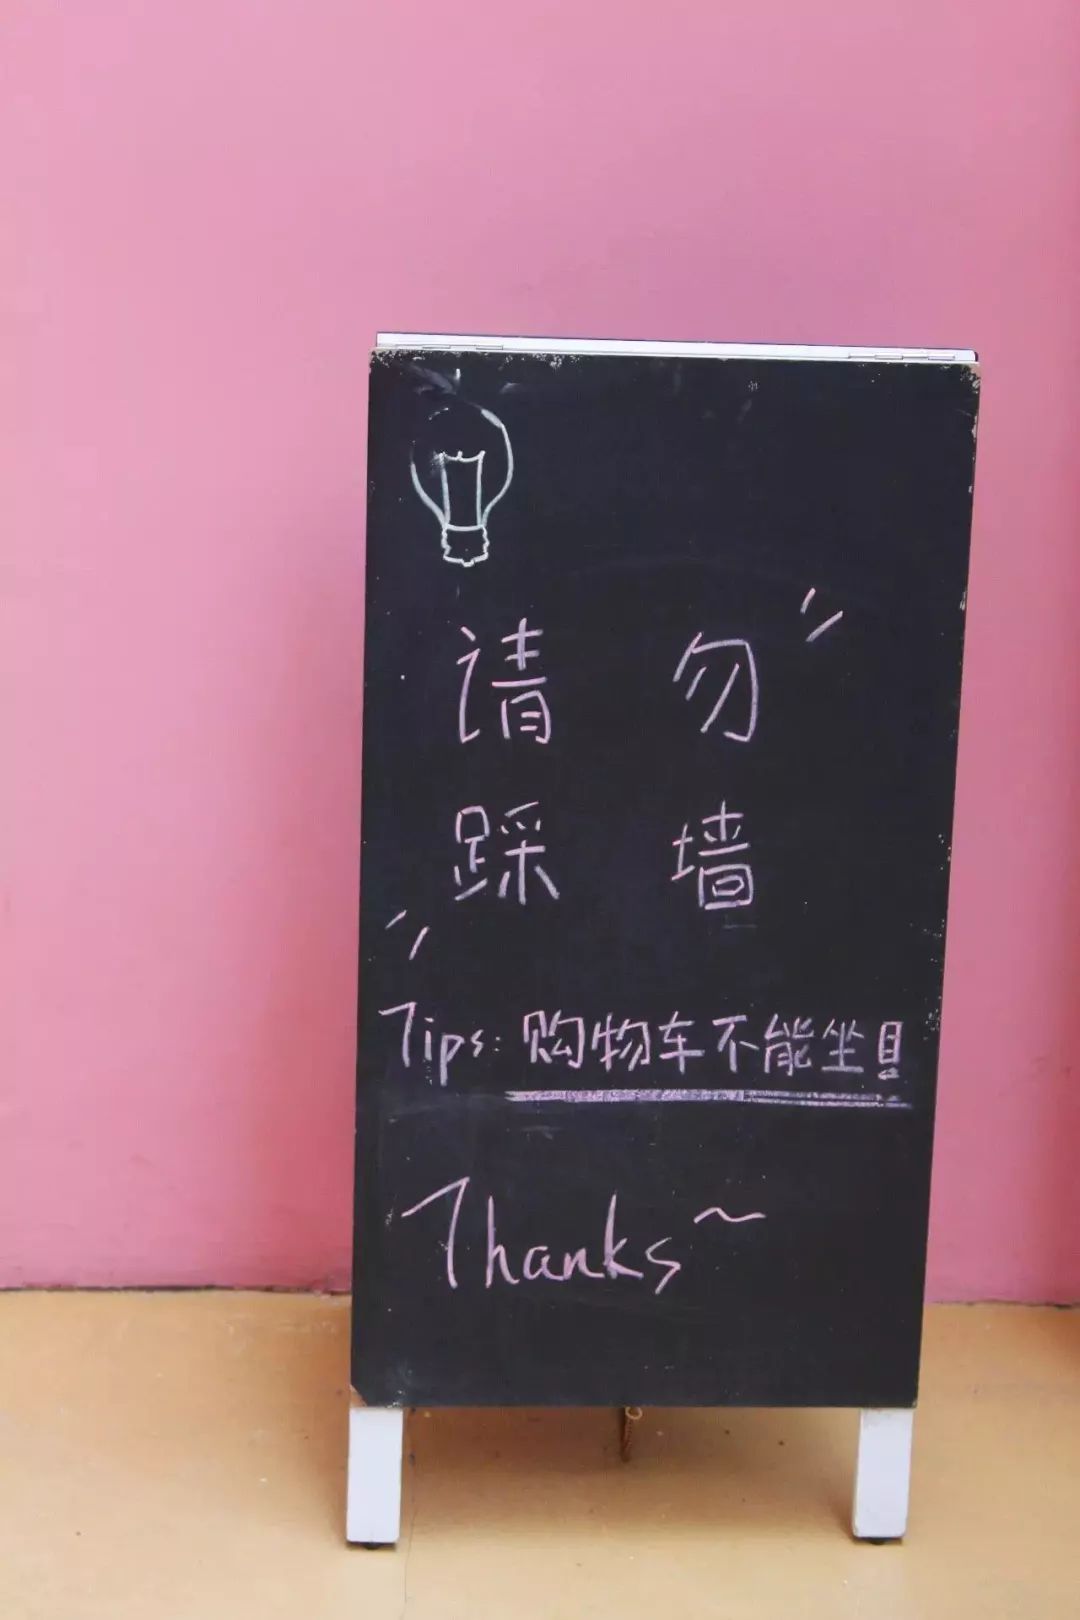 请勿
踩墙
Tips: 购物车不能坐!
Thanks~